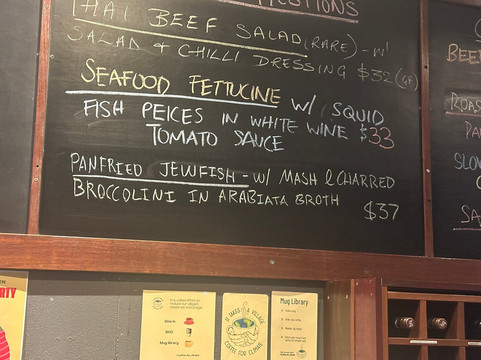 THAI BEEF SALAD (RARE) - W/
SALAD & CHILLI DRESSING $32 (GF)
SEAFOOD FETTUCINE W/ SQUID
FISH PEICES IN WHITE WINE $33
TOMATO SAUCE
PANFRIED JEWFISH - W/ MASH & CHARRED
BROCCOLINI IN ARABIATA BROTH
$37
BEE
ROAS
SLOW
SA
IT TAKES A VILLAGE
COFFEE FOR CLIMATE
Mug Library